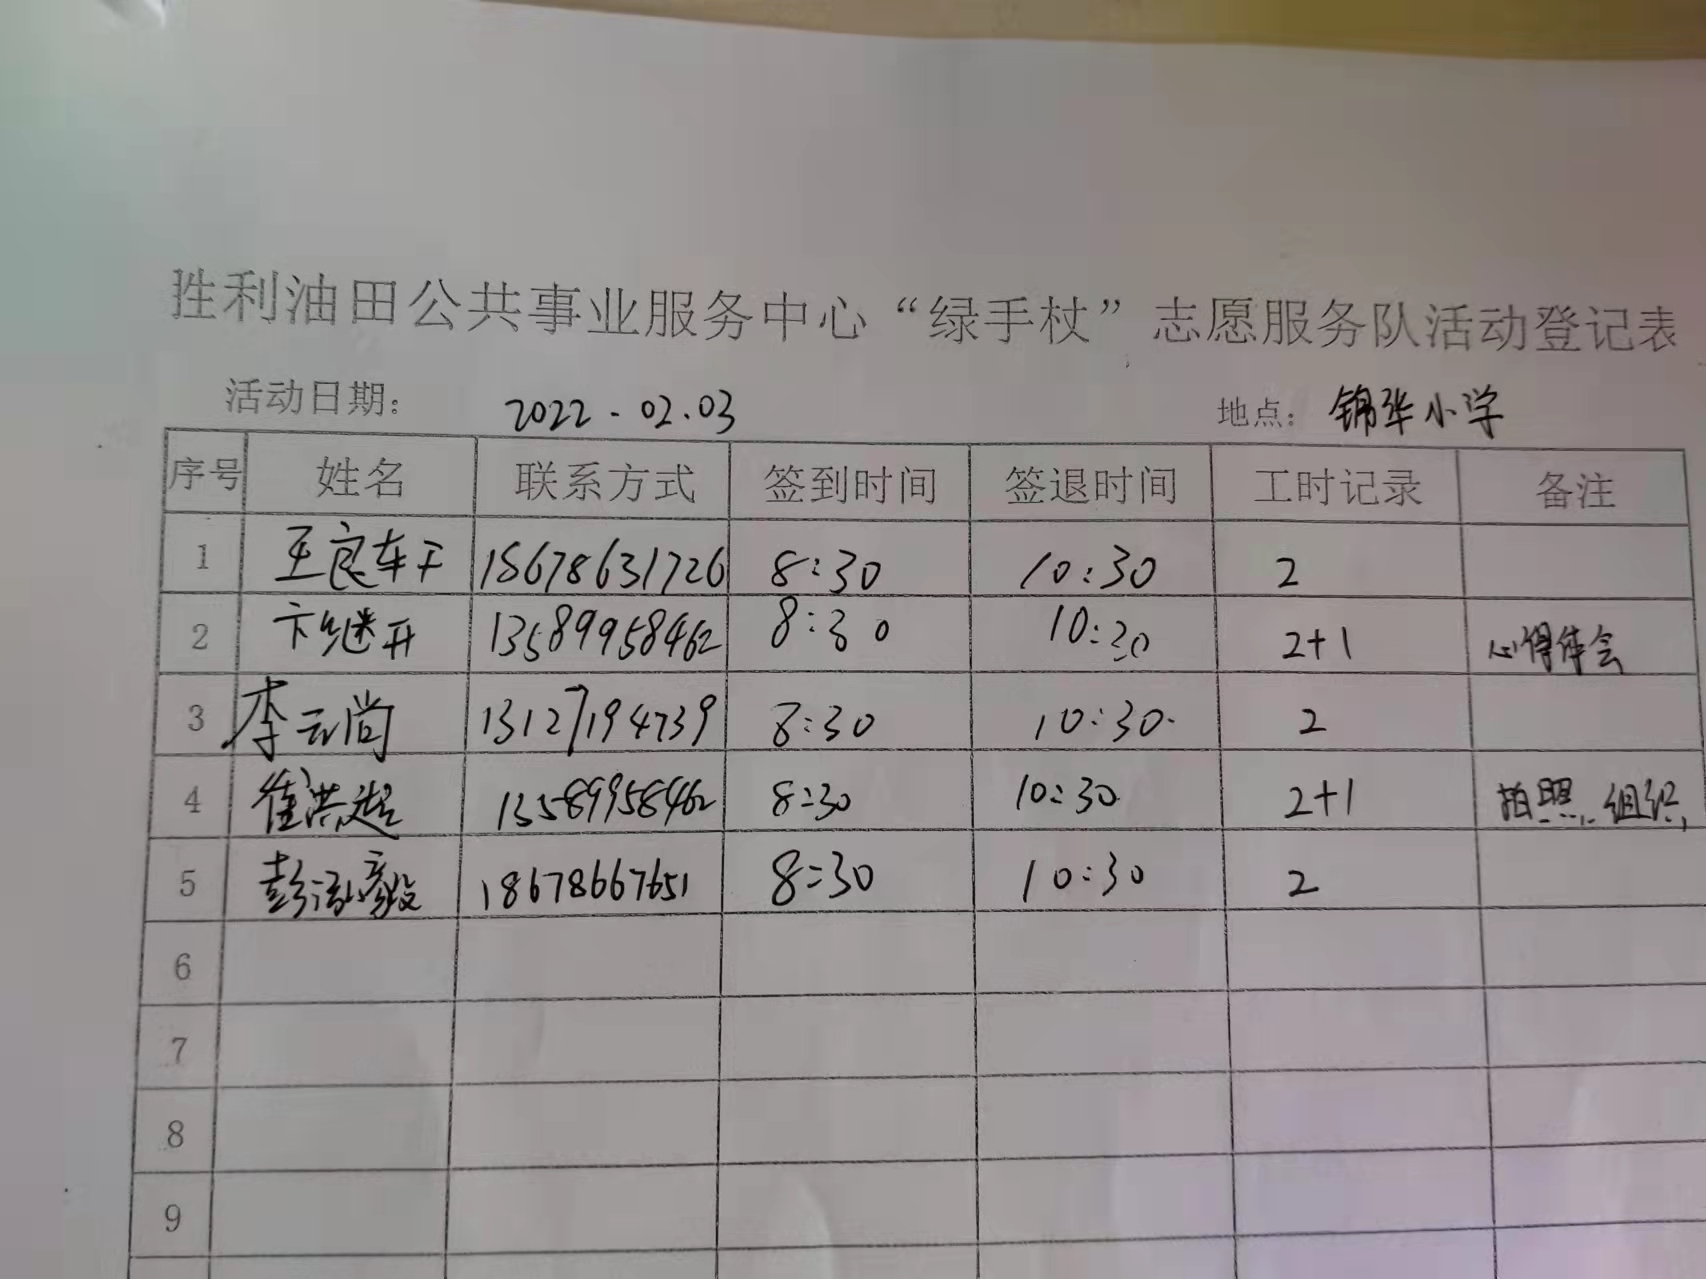 胜利油田公共事业服务中心“绿手杖”志愿服务队活动登记表
活动日期： 2022.02.03 地点：锦华小学
序号 姓名 联系方式 签到时间 签退时间 工时记录 备注
1 王良轩 15678631726 8:30 10:30 2
2 卞继开 13589958462 8:30 10:30 2+1 心得体会
3 李云尚 13127194739 8:30 10:30 2
4 崔洪超 13589958462 8:30 10:30 2+1 拍照、组织
5 彭泓毅 18678667651 8:30 10:30 2
6
7
8
9